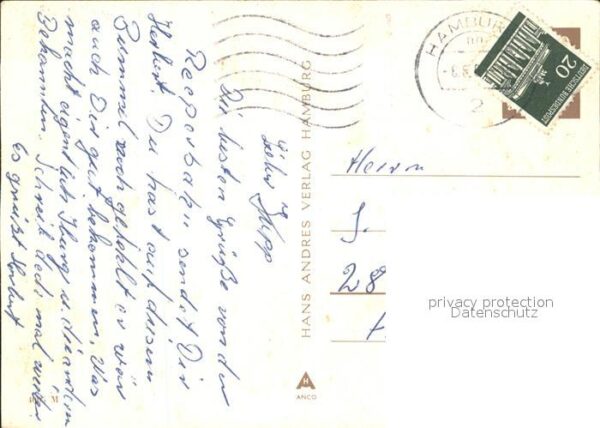 Lieber Jupp
Die besten Grüße von der
"Reeperbahn" sendet Dir
Herbert. Du hast auf diesem
Bummel noch gefehlt es wär
auch Dir gut bekommen. Was
macht eigentlich Iburg u. die andern
Bekannten. Schreib doch mal wieder
Es grüßt Herbert
HANS ANDRES VERLAG HAMBURG
ANCO
HAMBUR
2
20
DEUTSCHE BUNDESPOST
Herrn
J.
28
privacy protection
Datenschutz